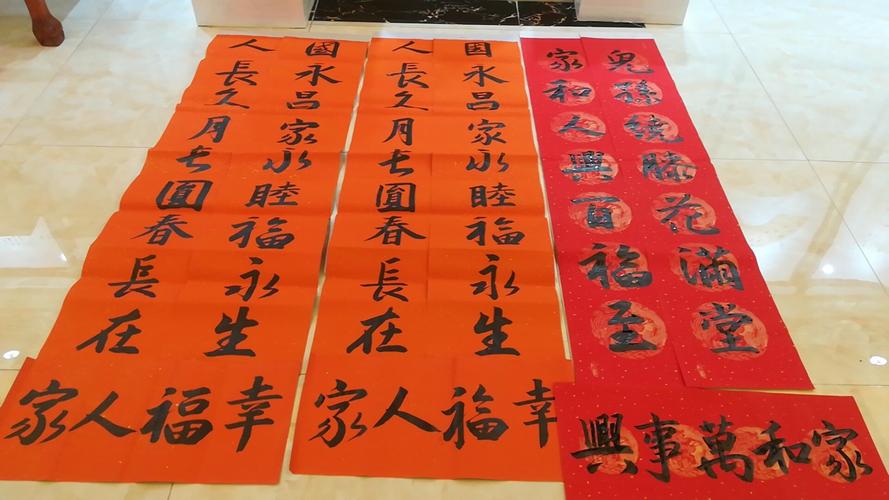 國永昌家永睦福永生
人長久月长圓春長在
幸福人家
国永昌家永睦福永生
人長久月长圓春長在
幸福人家
兒孫繞膝花滿堂
家和人興百福至
家和萬事興